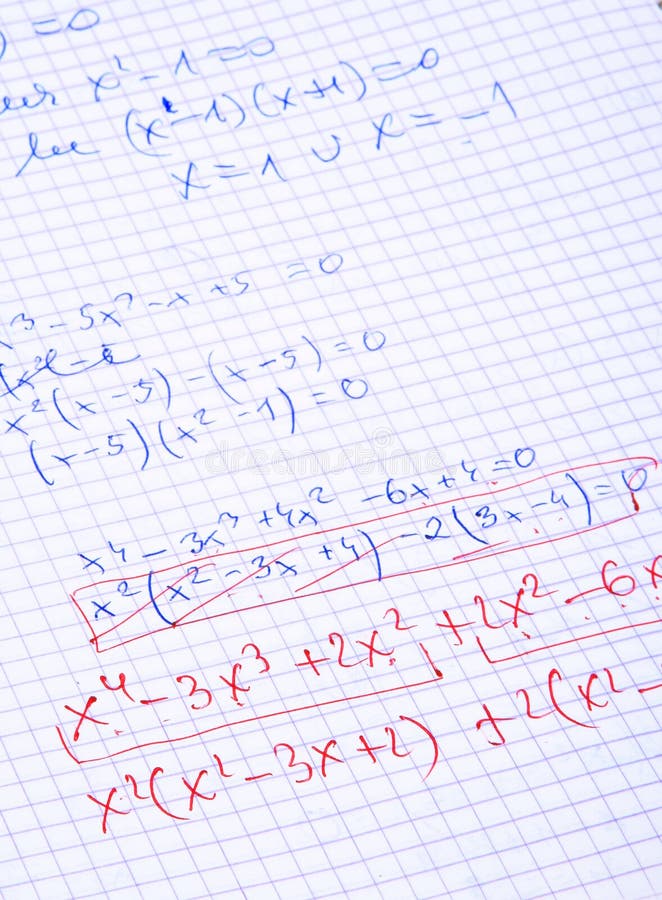 ) = 0
x² - 1 = 0
(x - 1)(x + 1) = 0
x = 1 ∪ x = -1
x³ - 5x² - x + 5 = 0
x²(x - 5) - (x - 5) = 0
(x - 5)(x² - 1) = 0
x⁴ - 3x³ + 4x² - 6x + 4 = 0
x²(x² - 3x + 4) - 2(3x - 4) = 0
x⁴ - 3x³ + 2x² + 2x² - 6x
x²(x² - 3x + 2) + 2(x² -
dreamstime